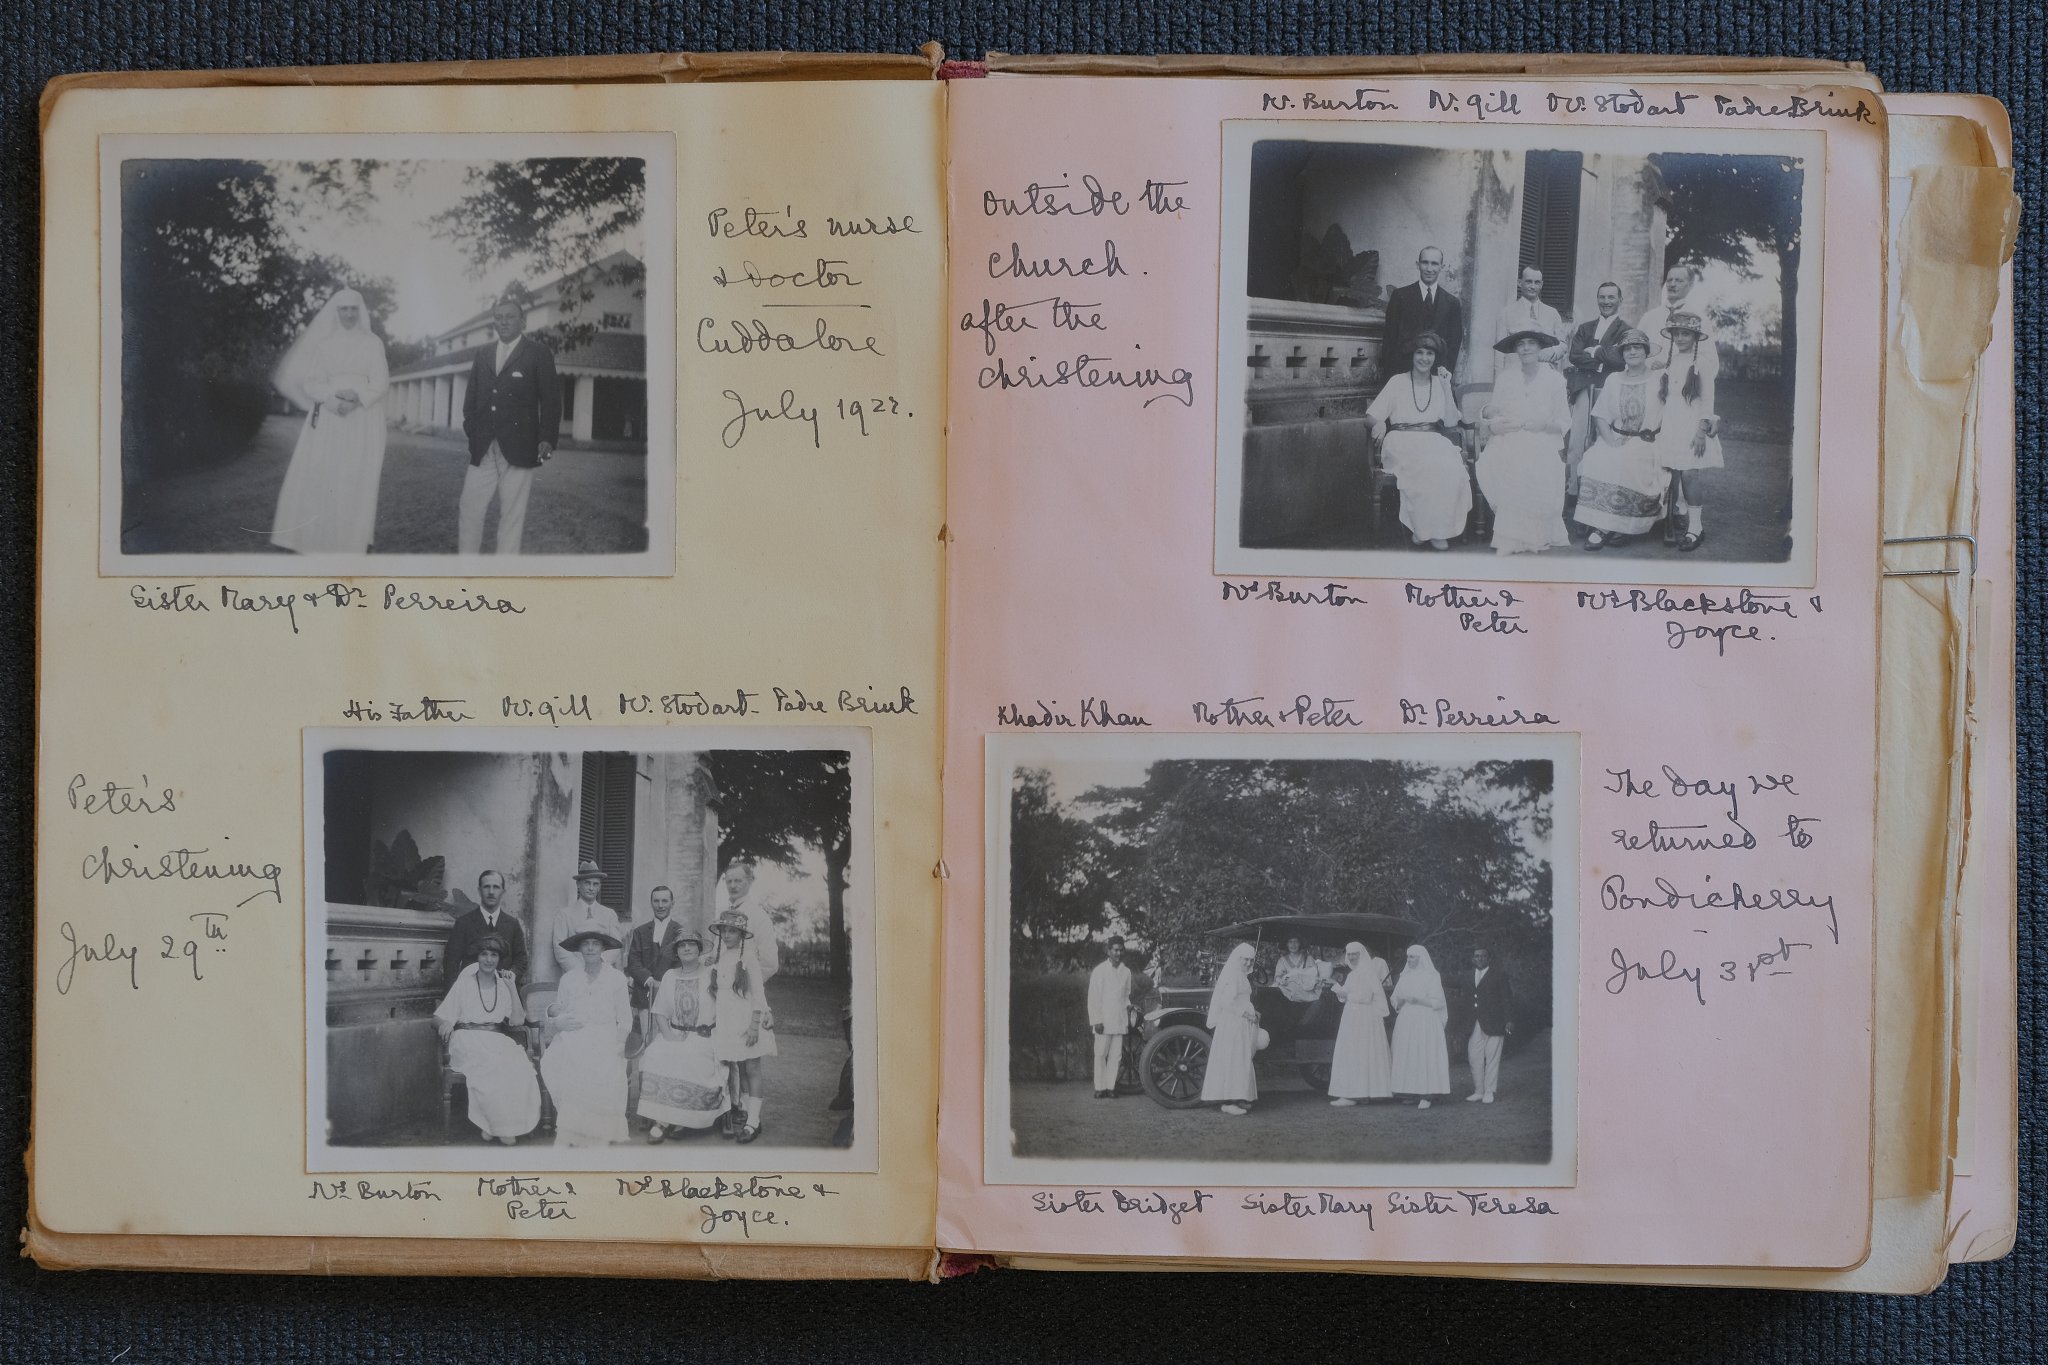 Peter's nurse
& Doctor
Cuddalore
July 1922.
Sister Mary & Dr Perreira
His Father Mr. Gill Mr. Stodart - Padre Brink
Peter's
christening
July 29th
Mrs Burton Mother & Mrs Blackstone &
Peter Joyce.
Mr. Burton Mr. Gill Mr. Stodart Padre Brink
outside the
church.
after the
christening
Mrs Burton Mother & Mrs Blackstone &
Peter Joyce.
Khadir Khan Mother & Peter Dr Perreira
The day we
returned to
Pondicherry
July 31st
Sister Bridget Sister Mary Sister Teresa